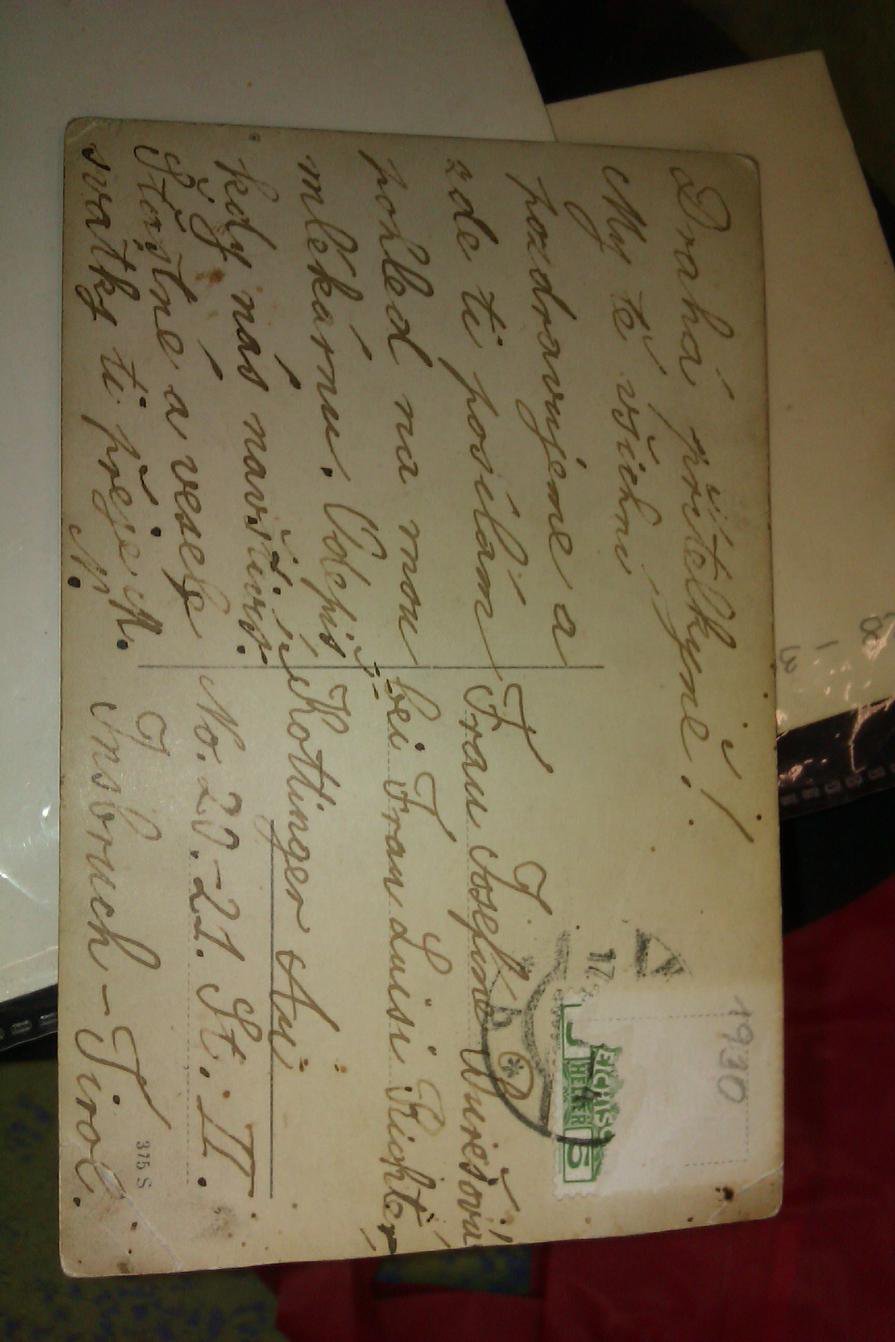 Drahá přítelkyně!
My tě všichni
pozdravujeme a
zde ti posílám
pohled na mou
mlékárnu. Odepiš
kdy nás navštívíš.
Šťastné a veselé
svátky ti přeje M.
N.
1930
17
5
HELLER
5
Frau Josefine
bei Frau Luisi Richter
Kottinger Au
No. 20-21. St. II.
Insbruch-Tirol.
375 S